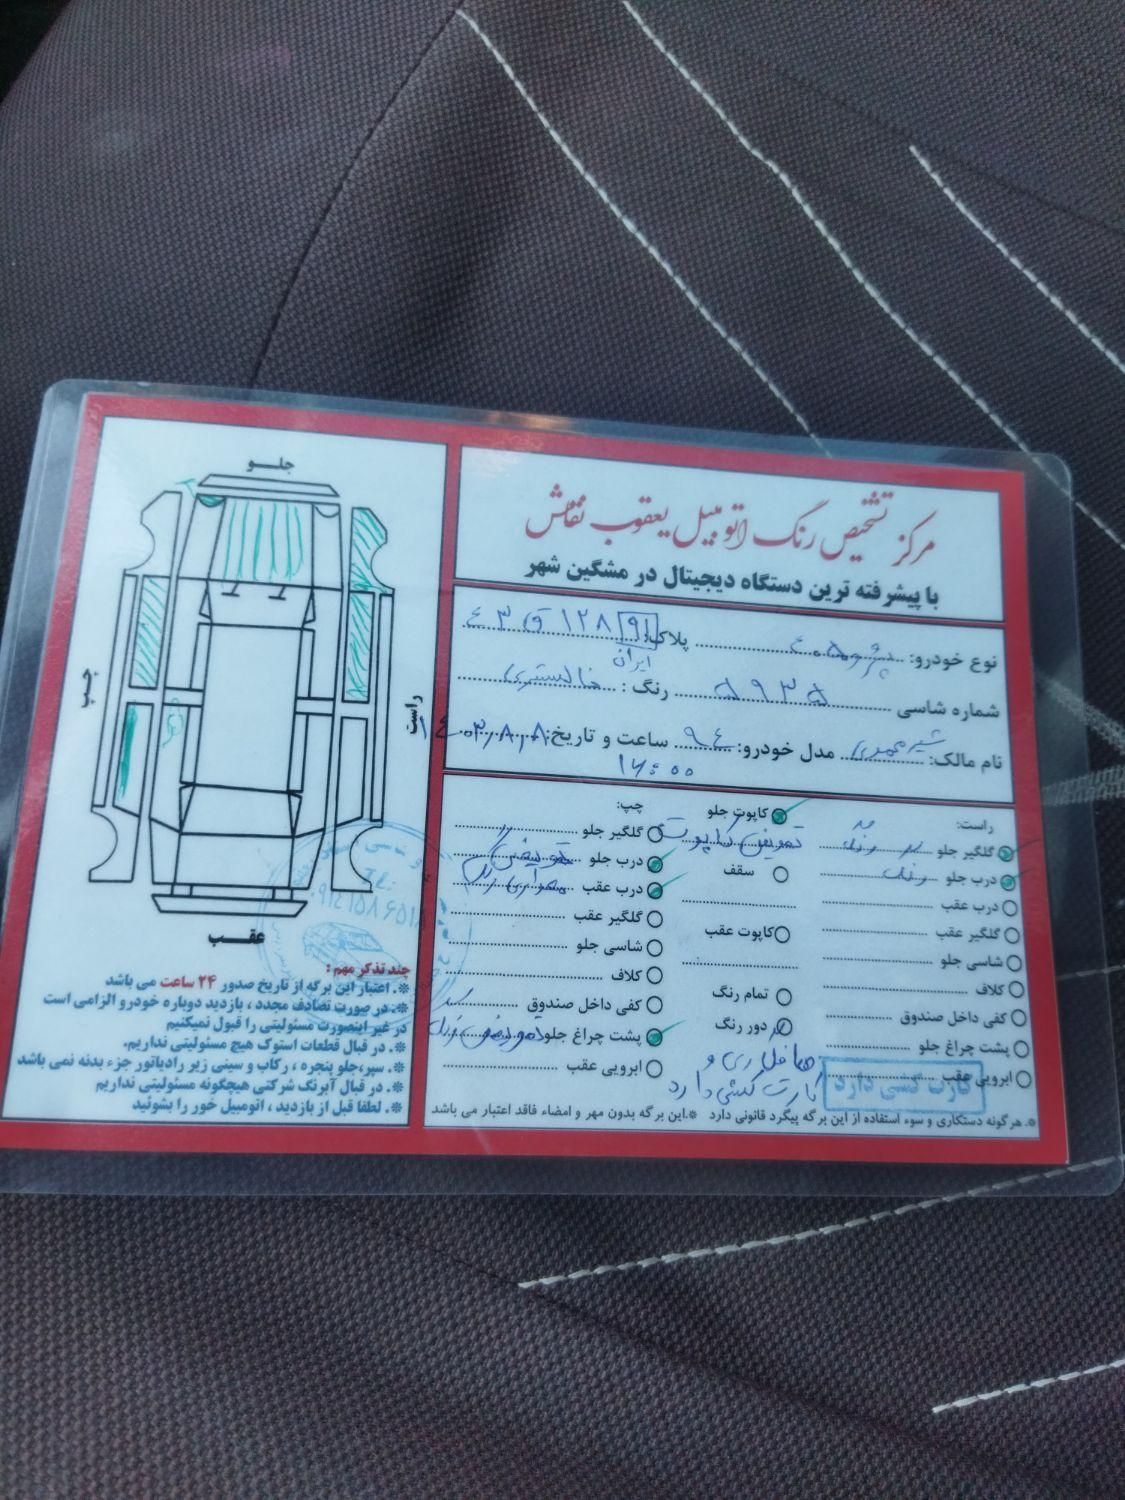 مرکز تشخیص رنگ اتومبیل یعقوب نقاش
با پیشرفته ترین دستگاه دیجیتال در مشگین شهر
نوع خودرو: پژو ۴۰۵ پلاک: ۹۱ ۱۲۸ ق ۴۳
ایران
شماره شاسی ۵۹۳۵ رنگ : خاکستری
نام مالک: شیرمحمدی مدل خودرو: ۹۴ ساعت و تاریخ: ۱۴۰۳،۸،۸
۱۶:۰۰
راست:
گلگیر جلو رنگ
درب جلو رنگ
درب عقب
گلگیر عقب
شاسی جلو
کلاف
کفی داخل صندوق
پشت چراغ جلو
ابرویی عقب
کاپوت جلو
تعویض کاپوت
سقف
کاپوت عقب
تمام رنگ
دور رنگ
صافکاری و
کارت کشی دارد
کارت کشی دارد
چپ:
گلگیر جلو
درب جلو تعویض
درب عقب
گلگیر عقب
شاسی جلو
کلاف
کفی داخل صندوق
پشت چراغ جلو
ابرویی عقب
*. هرگونه دستکاری و سوء استفاده از این برگه پیگرد قانونی دارد *.این برگه بدون مهر و امضاء فاقد اعتبار می باشد
جلـو
چپ
راست
عقـب
چند تذکر مهم :
*. اعتبار این برگه از تاریخ صدور ۲۴ ساعت می باشد
*. در صورت تصادف مجدد ، بازدید دوباره خودرو الزامی است
در غیر اینصورت مسئولیتی را قبول نمیکنیم
*. در قبال قطعات استوک هیچ مسئولیتی نداریم.
*. سپر،جلو پنجره ، رکاب و سینی زیر رادیاتور جزء بدنه نمی باشد
*. در قبال آبرنگ شرکتی هیچگونه مسئولیتی نداریم
*. لطفا قبل از بازدید ، اتومبیل خور را بشوئید